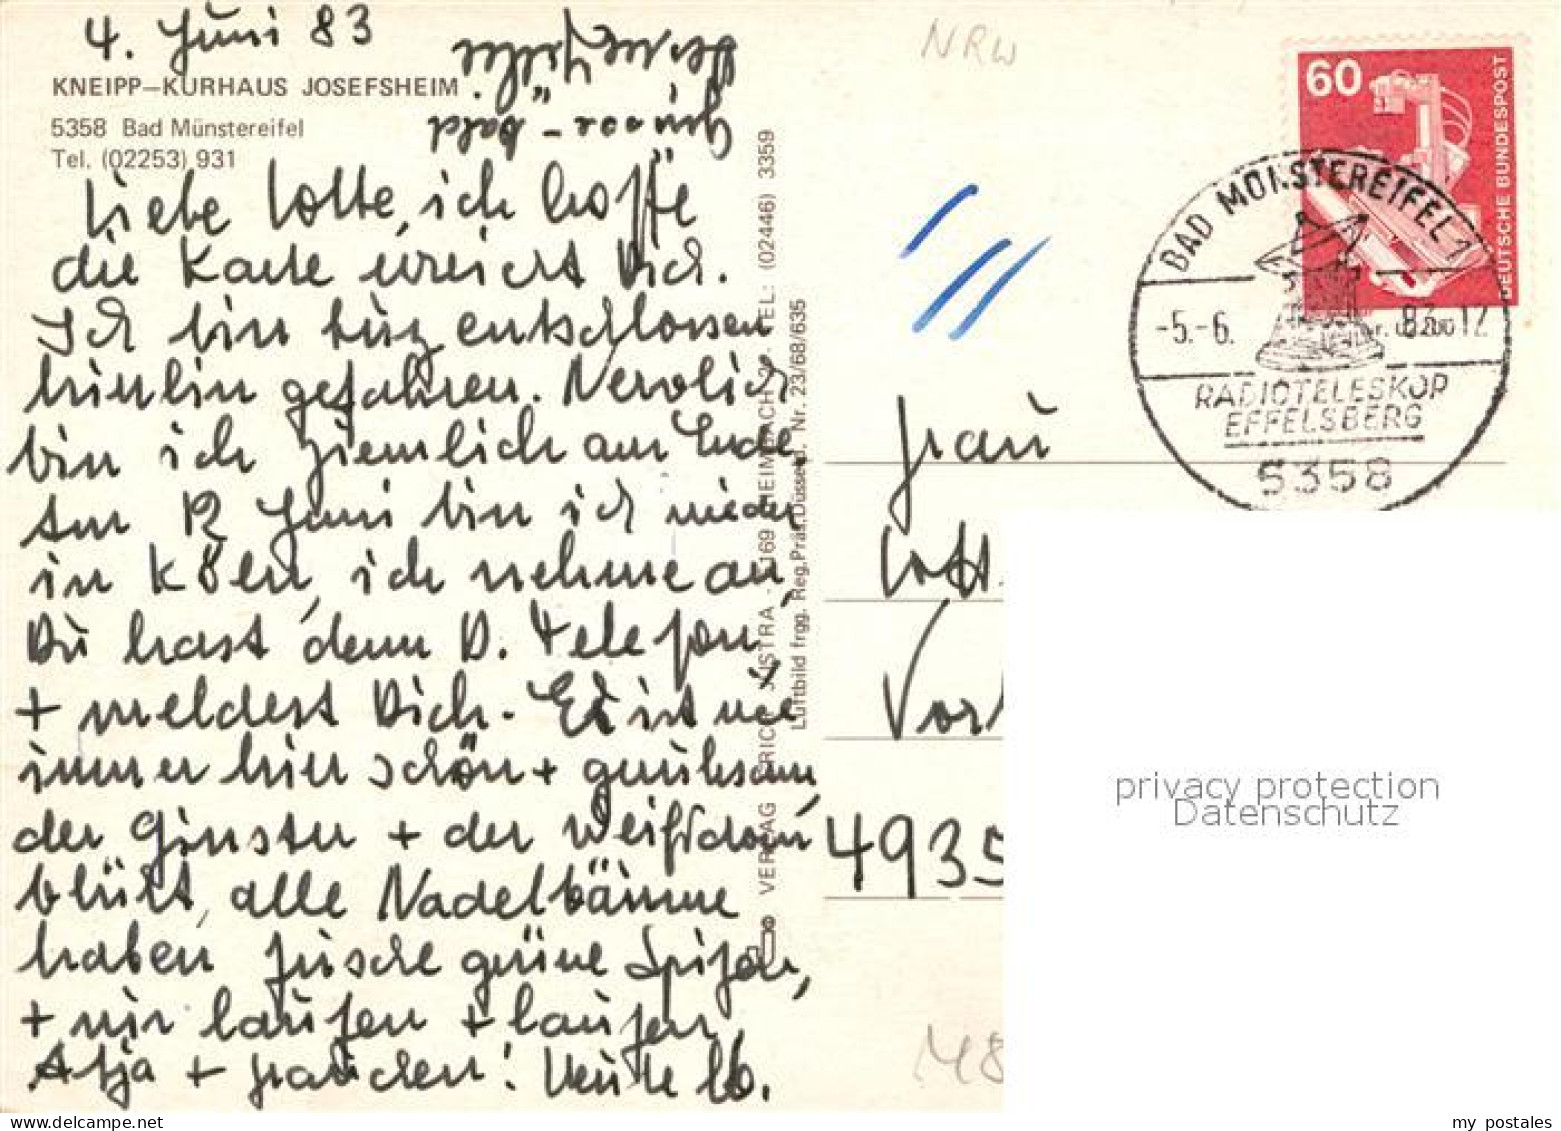 4. Juni 83
KNEIPP–KURHAUS JOSEFSHEIM
5358 Bad Münstereifel
Tel. (02253) 931
Liebe Lotte, ich hoffe
die Karte erreicht Dich.
Ich bin kurz entschlossen
hierhin gefahren. Nervlich
bin ich ziemlich am Ende
Am 12 Juni bin ich wieder
in Köln, ich nehme an,
Du hast denn D. Telefon,
+ meldest Dich. Es ist wie
immer hier schön + geruhsam,
der Ginster + der Weißdorn
blüht, alle Nadelbäume
haben frische grüne Spitzen,
+ wir laufen + laufen
Heute lb.
bald
VERLAG JUSTRA 169 HEIMBACH TEL: (02446) 3359
Luftbild frgg. Reg.Präs.Düsseld. Nr. 23/68/635
NRW
60
DEUTSCHE BUNDESPOST
BAD MÜNSTEREIFEL 1
-5.-6. 83.-12
RADIOTELESKOP
EFFELSBERG
5358
Frau
Lott
Vor
4935
M8
privacy protection
Datenschutz
my postales